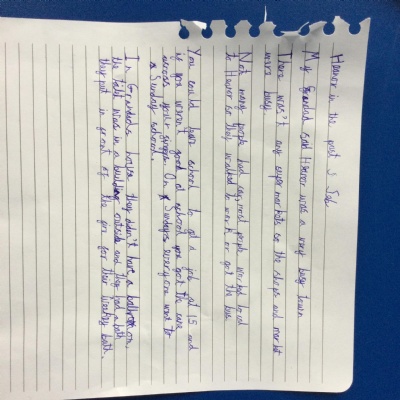 Heanor in the past
My Grandad said Heanor was a very busy town
There wasn't any supermarkets so the shops and market
were busy.
Not many people had cars, most people worked local
to Heanor so they walked to work or got the bus.
You could leave school to get a job at 15 and
if you wasn't good at school you got the cane
across your fingers. On Sundays everyone went to
Sunday school.
In Grandads house they didn't have a bathroom,
the toilet was in a building outside and they had a bath
they put in front of the fire for their weekly bath.